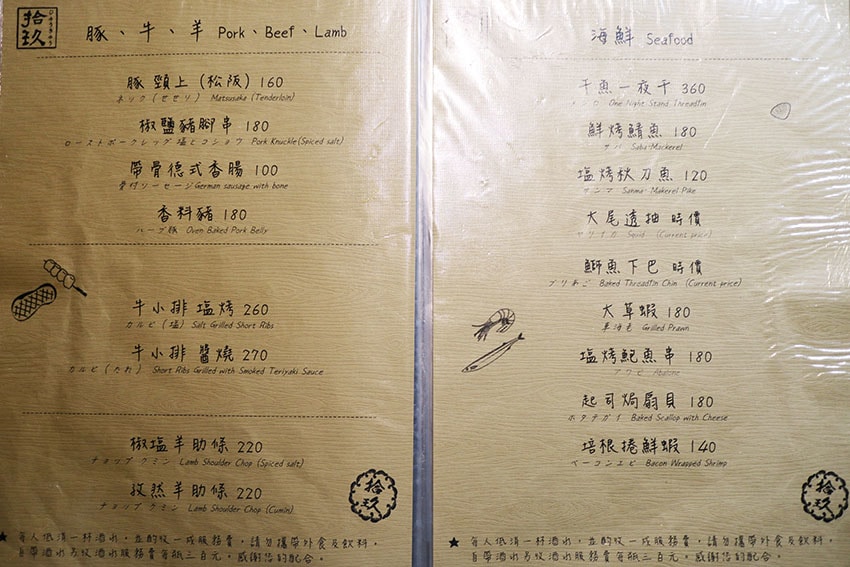 拾玖
豚、牛、羊 Pork、Beef、Lamb
豚 頸上（松阪）160
ネック（せせり） Matsusaka (Tenderloin)
椒鹽豬腳串 180
ローストポークレッグ 塩とコショウ Pork Knuckle(Spiced salt)
帶骨德式香腸 100
骨付ソーセージ German sausage with bone
香料豬 180
ハーブ豚 Oven Baked Pork Belly
牛小排 塩烤 260
カルビ（塩）Salt Grilled Short Ribs
牛小排 醬燒 270
カルビ（たれ） Short Ribs Grilled with Smoked Teriyaki Sauce
椒塩羊肋條 220
チョップ クミン Lamb Shoulder Chop (Spiced salt)
孜然羊肋條 220
チョップ クミン Lamb Shoulder Chop (Cumin)
拾玖
★ 每人低消一杯酒水，並酌收一成服務費，請勿攜帶外食及飲料，
自帶酒水另收酒水服務費每瓶三百元。感謝您的配合。
海鮮 Seafood
午魚一夜干 360
One Night Stand Threadfin
鮮烤鯖魚 180
サバ Saba Mackerel
塩烤秋刀魚 120
サンマ Sanma Makerel Pike
大尾透抽 時價
ヤリイカ Squid (Current price)
鰤魚下巴 時價
ブリあご Baked Threadfin Chin (Current price)
大草蝦 180
車海老 Grilled Prawn
塩烤鮑魚串 180
アワビ Abalone
起司焗扇貝 180
ホタテガイ Baked Scallop with Cheese
培根捲鮮蝦 140
ベーコンエビ Bacon Wrapped Shrimp
拾玖
★ 每人低消一杯酒水，並酌收一成服務費，請勿攜帶外食及飲料，
自帶酒水另收酒水服務費每瓶三百元。感謝您的配合。